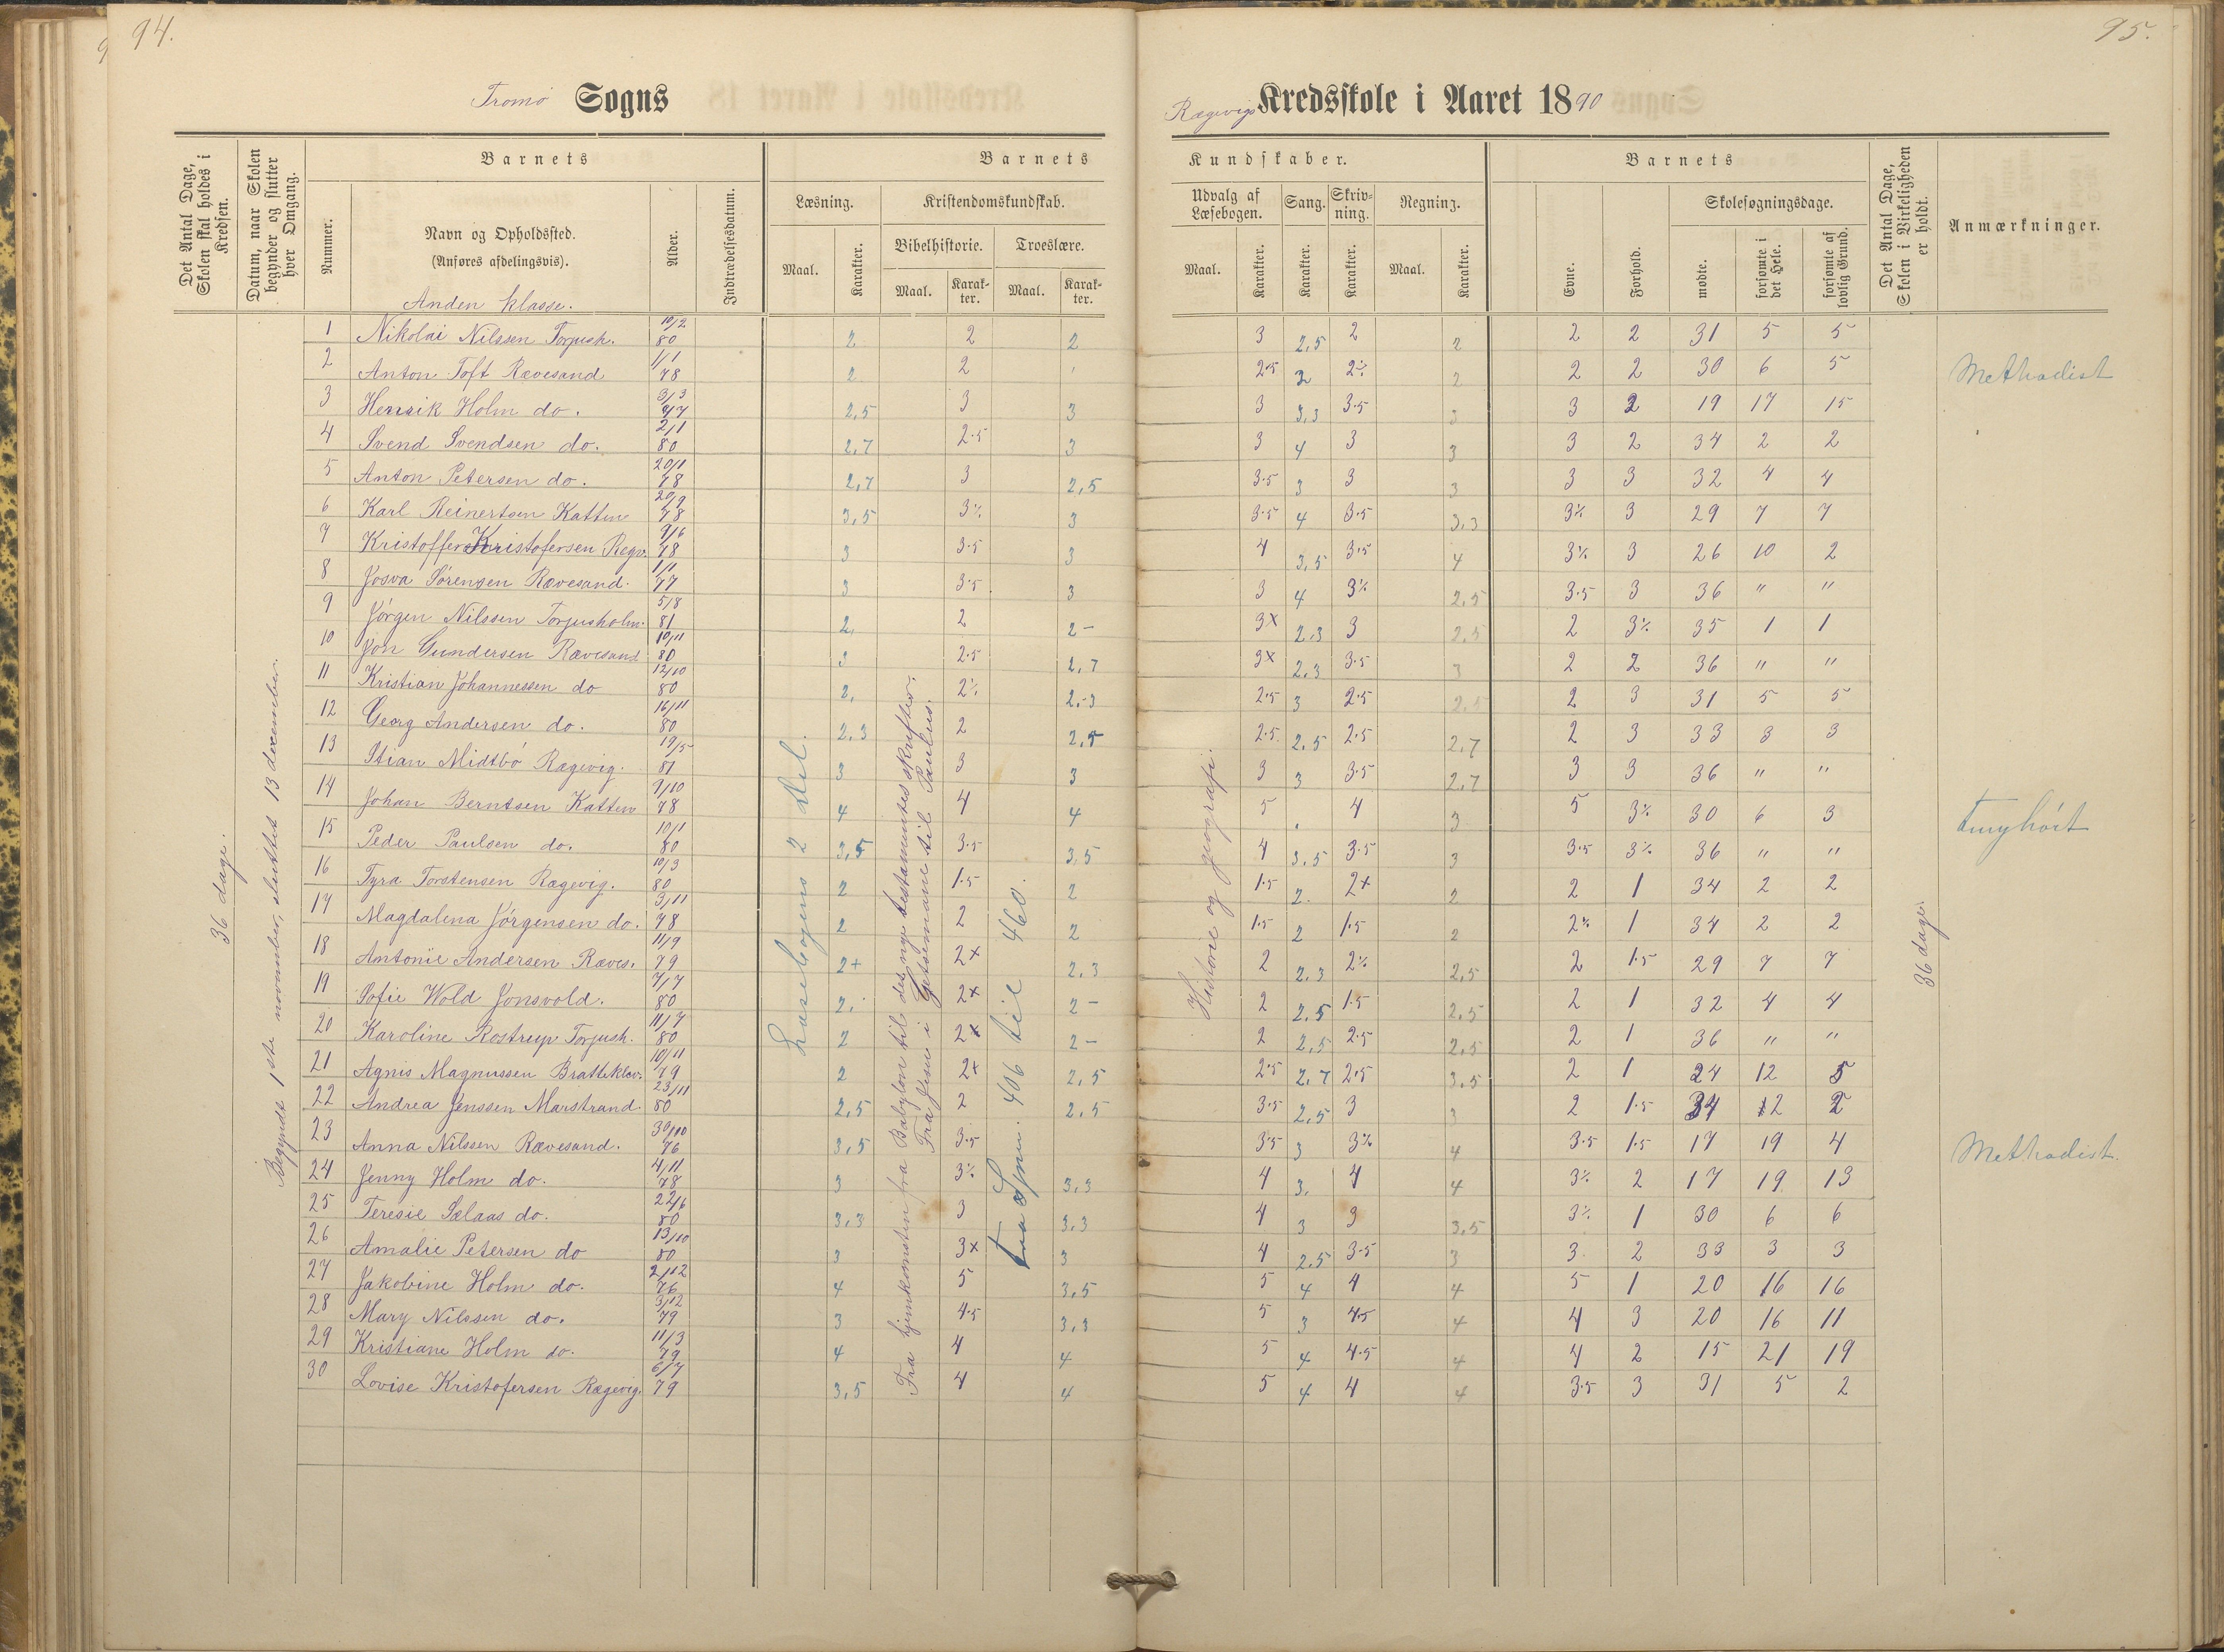 94.
Tromö Sogns
Barnets
Barnets
Det Antal Dage, Skolen skal holdes i Kredsen.
Datum, naar Skolen begynder og slutter hver Omgang.
Nummer.
Navn og Opholdssted.
(Anføres afdelingsvis).
Alder.
Indtrædelsesdatum.
Læsning.
Kristendomskundskab.
Bibelhistorie.
Troeslære.
Maal.
Karakter.
Maal.
Karakter.
Maal.
Karakter.
Anden klasse.
1 Nikolai Nilssen Torjush. 10/2 80 2 2 2
2 Anton Toft Rævesand 1/1 78 2 2
3 Henrik Holm do. 3/3 77 2,5 3 3
4 Svend Svendsen do. 2/1 80 2,7 2.5 3
5 Anton Petersen do. 20/1 78 2,7 3 2,5
6 Karl Reinertsen Katten 20/9 78 3,5 3 3
7 Kristoffer Kristofersen Rægv. 9/6 78 3 3.5 3
8 Josva Sörensen Rævesand. 1/1 77 3 3.5 3
9 Jörgen Nilssen Torjusholm. 5/8 81 2, 2 2-
10 Jon Gundersen Rævesand 10/11 80 3 2.5 2,7
11 Kristian Johannessen do 12/10 80 2, 2 2,3
12 Georg Andersen do. 16/11 80 2,3 2 2,5
13 Stian Midtbö Rægevig. 19/5 81 3 3 3
14 Johan Berntsen Katten 9/10 78 4 4 4
15 Peder Paulsen do. 10/1 80 3,5 3.5 3,5
16 Tyra Torstensen Rægevig. 10/3 80 2 1.5 2
17 Magdalena Jörgensen do. 3/11 78 2 2 2
18 Antonie Andersen Ræves. 11/9 79 2+ 2+ 2,3
19 Sofie Wold Jonsvold. 7/7 80 2. 2+ 2-
20 Karoline Rostrup Torjush. 11/7 80 2 2+ 2-
21 Agnis Magnussen Bratteklev. 10/11 79 2 2+ 2,5
22 Andrea Jenssen Marstrand. 23/11 80 2,5 2 2,5
23 Anna Nilssen Rævesand. 30/10 76 3,5 3.5
24 Jenny Holm do. 4/11 78 3 3 3,3
25 Teresie Sælaas do. 22/6 80 3,3 3 3,3
26 Amalie Petersen do 13/10 80 3 3+ 3
27 Jakobine Holm do. 2/12 76 4 5 3,5
28 Mary Nilssen do. 3/12 79 3 4.5 3,3
29 Kristiane Holm do. 11/3 79 4 4 4
30 Lovise Kristofersen Rægevig. 6/7 79 3,5 4 4
36 dage.
Begyndt 1ste november, sluttet 13 december.
Læsebogens 2 del.
Fra hjemkomsten fra Babylon til det nye testamentes skrifter.
Fra Jesu i Getsemane til Paulus.
Fra Spm. 406 til 460.
95.
Rægevigs Kredsskole i Aaret 1890
Kundskaber.
Barnets
Udvalg af Læsebogen.
Sang.
Skrivning.
Regning.
Skolesøgningsdage.
Maal.
Karakter.
Karakter.
Karakter.
Maal.
Karakter.
Evne.
Forhold.
mødte.
forsømte i det Hele.
forsømte af lovlig Grund.
Det Antal Dage, Skolen i Virkeligheden er holdt.
Anmærkninger.
3 2,5 2 2 2 2 31 5 5
2.5 2 2 2 2 2 30 6 5 Methodist
3 3,3 3.5 3 3 2 19 17 15
3 4 3 3 3 2 34 2 2
3.5 3 3 3 3 3 32 4 4
3.5 4 3.5 3,3 3 3 29 7 7
4 3,5 3.5 4 3 3 26 10 2
3 4 3 2,5 3.5 3 36 " "
3+ 2,3 3 2,5 2 3 35 1 1
3+ 2,3 3.5 3 2 2 36 " "
2.5 3 2.5 2,5 2 3 31 5 5
2.5 2,5 2.5 2,7 2 3 33 3 3
3 3 3.5 2,7 3 3 36 " "
5 . 4 3 5 3 30 6 3 tunghört
4 3,5 3.5 3 3.5 3 36 " "
1.5 2. 2+ 2 2 1 34 2 2
1.5 2 1.5 2 2 1 34 2 2
2 2,3 2 2,5 2 1.5 29 7 7
2 2,5 1.5 2,5 2 1 32 4 4
2 2,5 2.5 2,5 2 1 36 " "
2.5 2,7 2.5 3,5 2 1 24 12 5
3.5 2,5 3 3 2 1.5 34 2 2
3.5 3 3 4 3.5 1.5 17 19 4 Methodist.
4 3. 4 4 3 2 17 19 13
4 3 3 3,5 3 1 30 6 6
4 2,5 3.5 3 3 2 33 3 3
5 4 4 4 5 1 20 16 16
5 3 4.5 4 4 3 20 16 11
5 4 4.5 4 4 2 15 21 19
5 4 4 4 3.5 3 31 5 2
Historie og geografi.
36 dage.